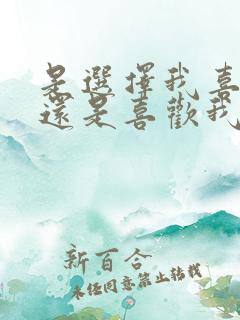 是選擇我喜
還是喜歡我
新百合
未经同意禁止转载